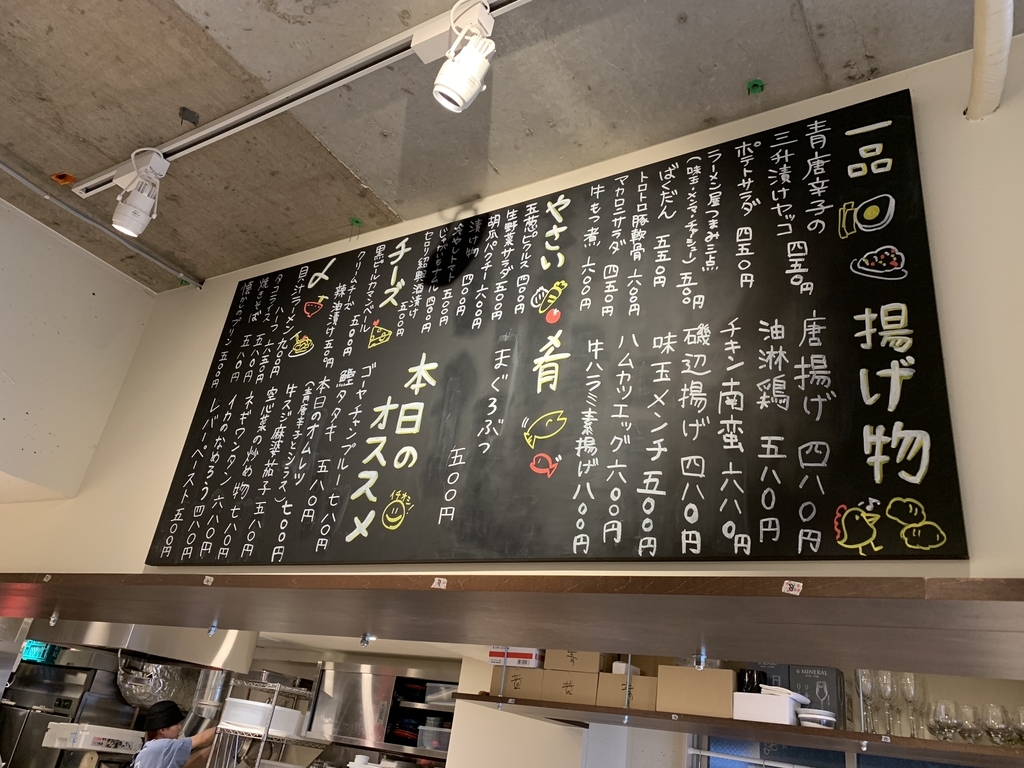 一品
青唐辛子の
三升漬けヤッコ 四五〇円
ポテトサラダ 四五〇円
ラーメン屋つまみ三点
(味玉・メンマ・チャーシュー) 五五〇円
ばくだん 五五〇円
トロトロ豚軟骨 六〇〇円
マカロニサラダ 四五〇円
牛もつ煮 六〇〇円
揚げ物
唐揚げ 四八〇円
油淋鶏 五八〇円
チキン南蛮 六八〇円
磯辺揚げ 四八〇円
味玉メンチ 五〇〇円
ハムカツエッグ 六〇〇円
牛ハラミ素揚げ 八〇〇円
やさい
玉葱ピクルス 四〇〇円
生野菜サラダ 五〇〇円
胡瓜パクチー 六〇〇円
四〇〇円
五〇〇円
四〇〇円
肴
まぐろぶつ
五〇〇円
チーズ
クリームチーズ
辣油漬け 五五〇円
本日の
オススメ
イチオシ
ゴーヤチャンプルー 七八〇円
鰹タタキ 五八〇円
本日のオムレツ
(青唐辛子とシラス) 七〇〇円
牛スジ麻婆茄子 五八〇円
空心菜の炒め物 七八〇円
ネギワンタン 六八〇円
イカのなめろう 四八〇円
レバーペースト 五五〇円
〆
目汁ラーメン 九〇〇円
六五〇円
焼きそば 五八〇円